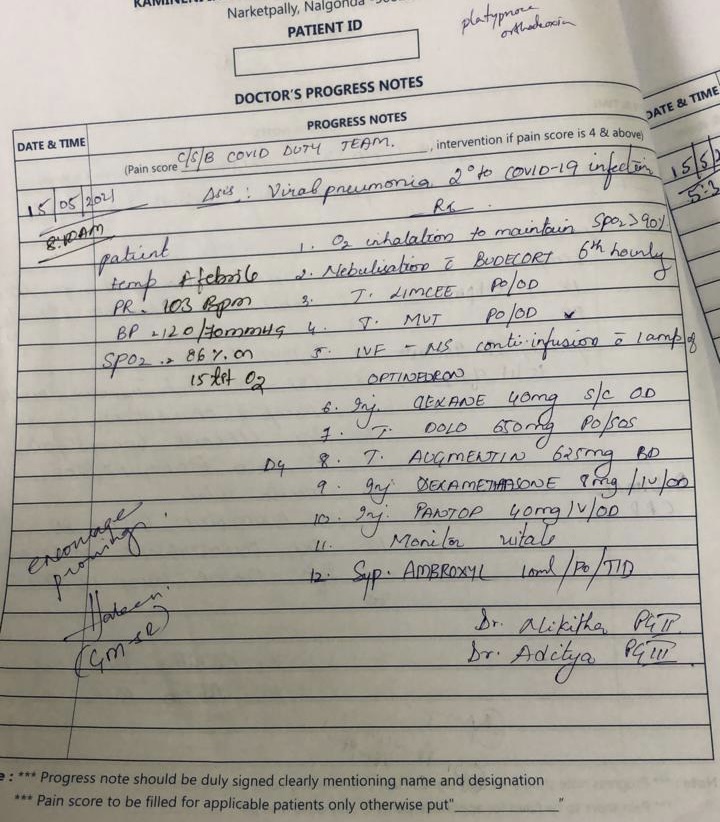 Narketpally, Nalgonda
PATIENT ID
platypnoea
orthodeoxia
DOCTOR'S PROGRESS NOTES
DATE & TIME
PROGRESS NOTES
DATE & TIME
(Pain score C/S/B COVID DUTY TEAM. , intervention if pain score is 4 & above)
15/05/2021
: Viral pneumonia 2° to COVID-19 infection
15/5/2
8:10AM
Rx
patient
1. O2 inhalation to maintain SpO2 > 90%
temp Afebrile
2. Nebulisation c̄ BUDECORT 6th hourly
PR - 103 Bpm
3. T. LIMCEE PO/OD
BP - 120/70mmHg
4. T. MVT PO/OD
SPO2 - 86%. on
5. IVF - NS conti. infusion c̄ 1 amp of
15 lit O2
OPTINEURON
6. Inj. CLEXANE 40mg S/C OD
7. T. DOLO 650mg PO/SOS
D4
8. T. AUGMENTIN 625mg BD
9. Inj DEXAMETHASONE 8mg/IV/OD
10. Inj. PANTOP 40mg IV/OD
encourage
proning.
11. Monitor vitals
12. Syp. AMBROXYL 10ml/PO/TID
(GM-SR)
Dr. Alikitha PG II
Dr. Aditya PG III
e : *** Progress note should be duly signed clearly mentioning name and designation
*** Pain score to be filled for applicable patients only otherwise put"____________"